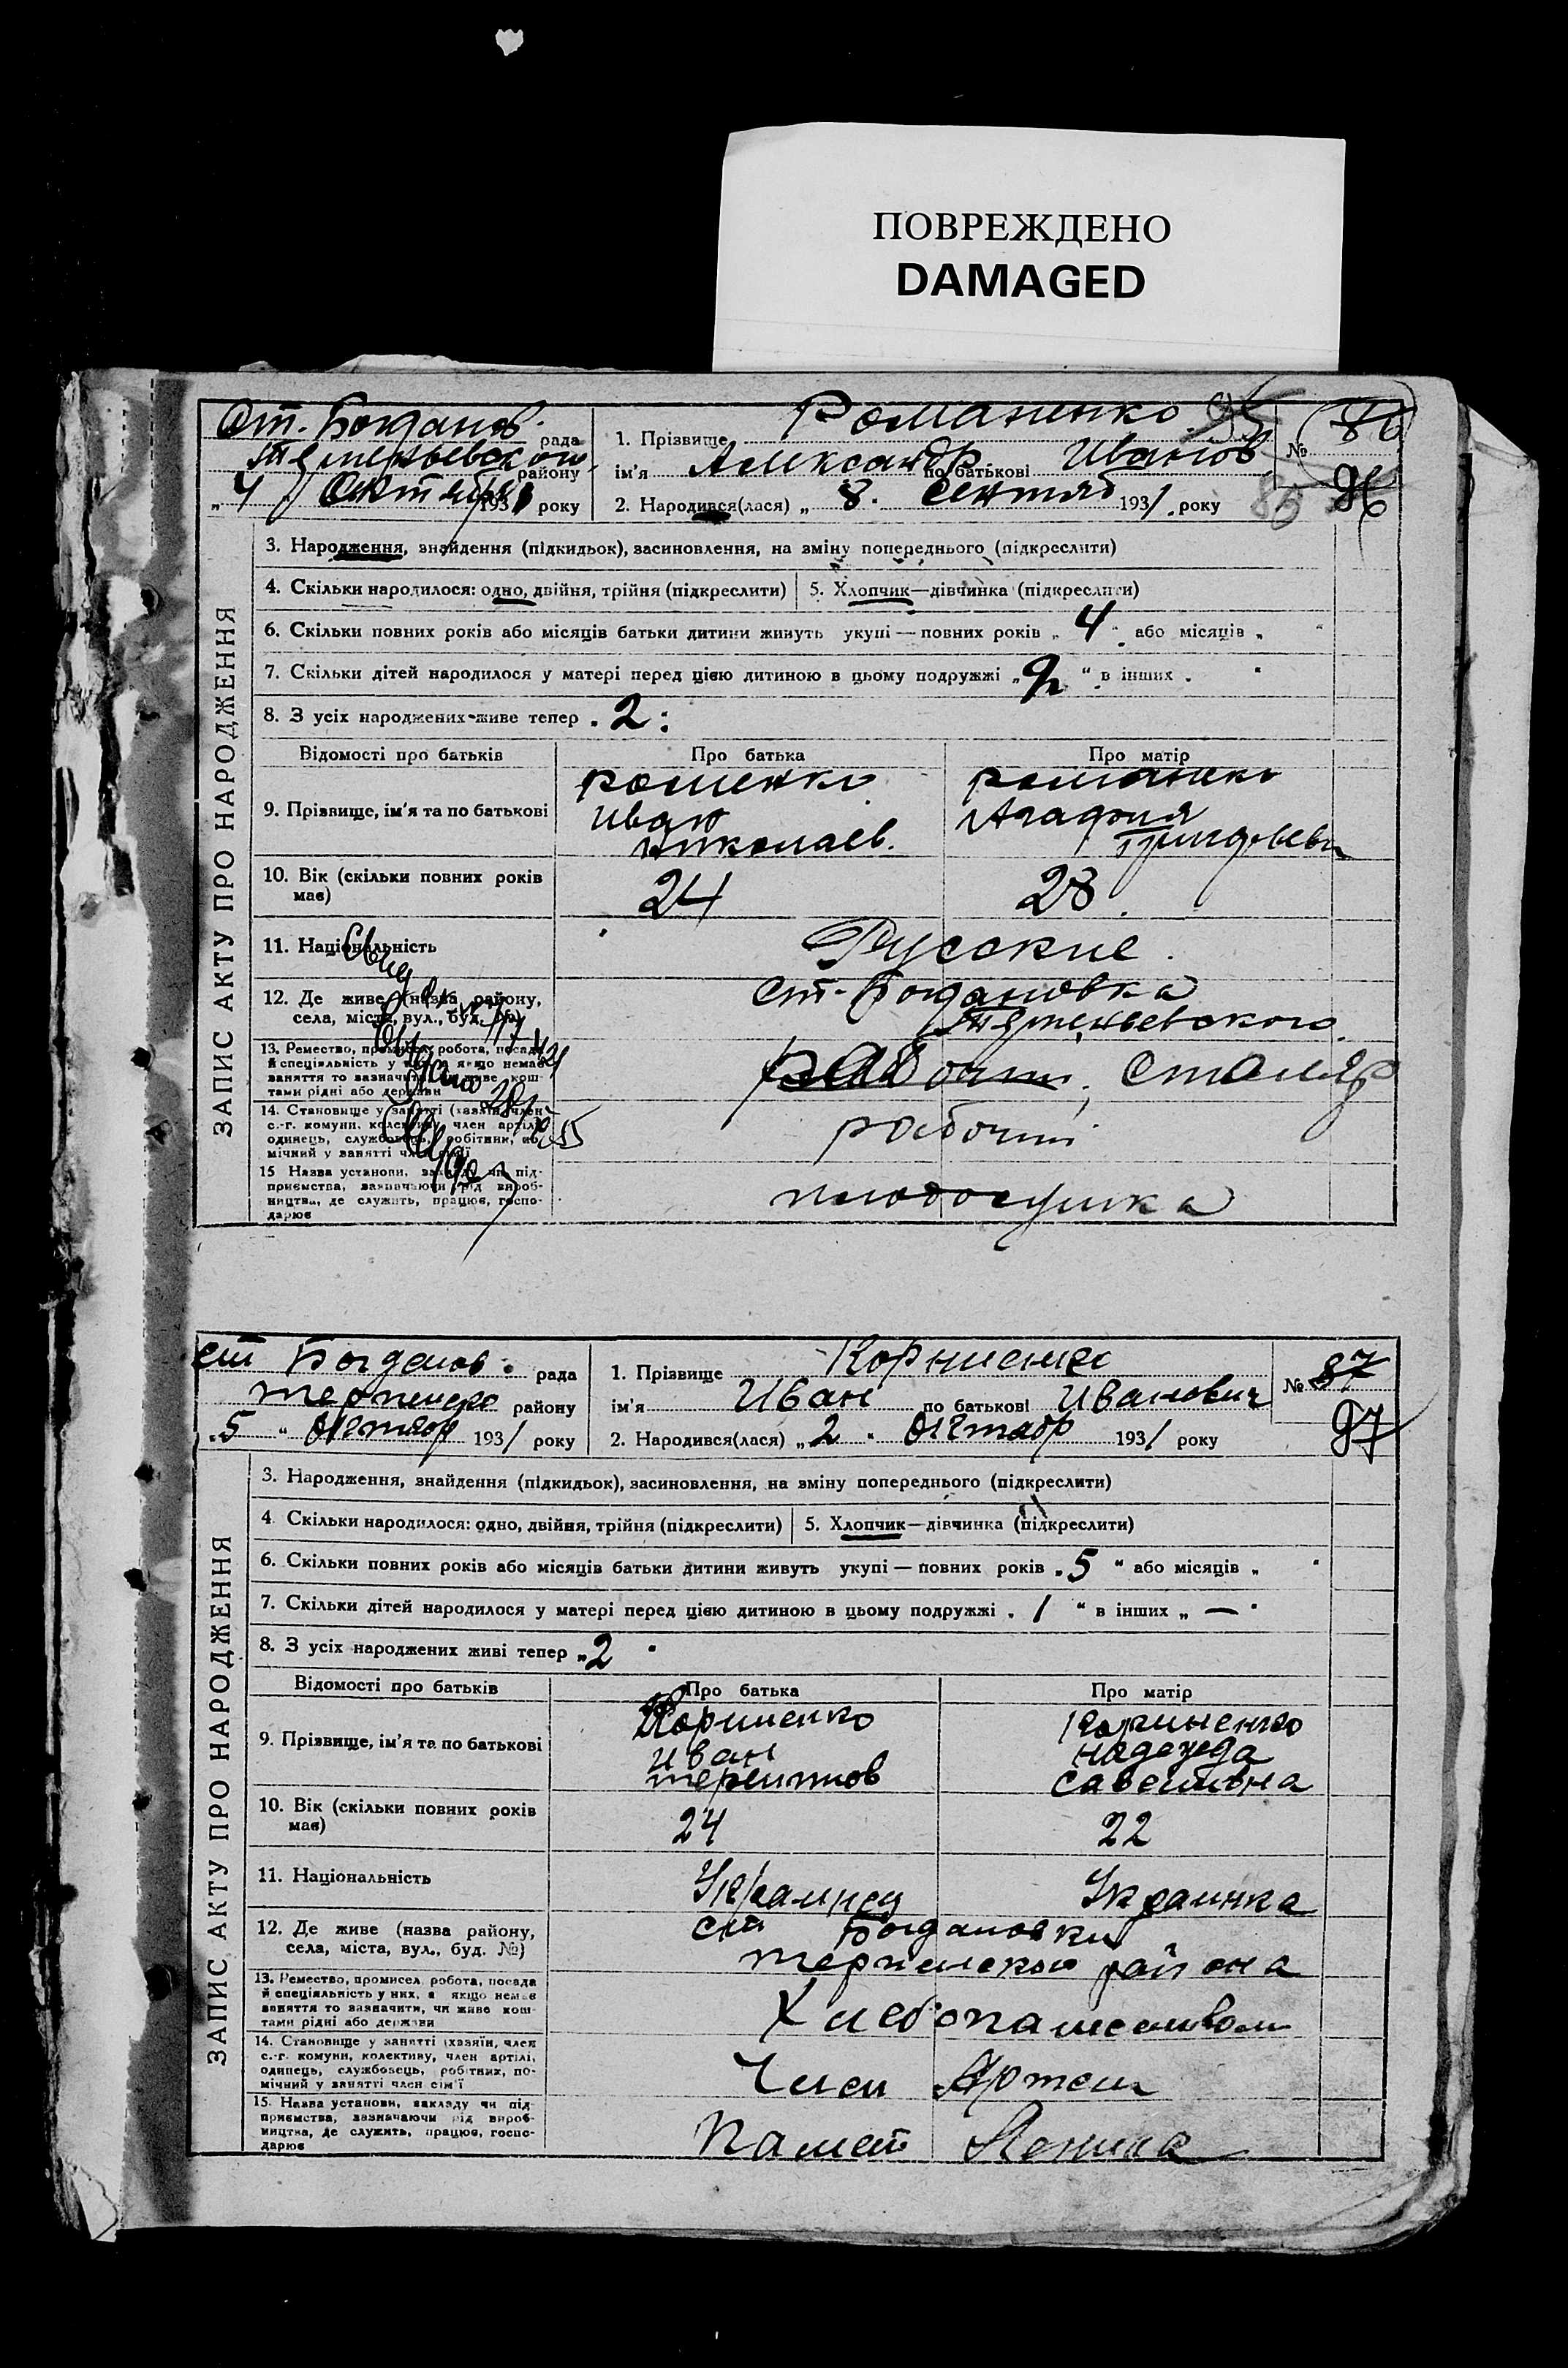 ПОВРЕЖДЕНО
DAMAGED
ст. Богданов. рада
района району
"4" Октября 1931 року
1. Прізвище Романенко
ім'я Александр по батькові Иванов
2. Народився(лася) „8. сентяб 1931. року
№ 86
96
ЗАПИС АКТУ ПРО НАРОДЖЕННЯ
3. Народження, знайдення (підкидьок), засиновлення, на зміну попереднього (підкреслити)
4. Скільки народилося: одно, двійня, трійня (підкреслити) 5. Хлопчик—дівчинка (підкреслити)
6. Скільки повних років або місяців батьки дитини живуть укупі—повних років „4" або місяців „ "
7. Скільки дітей народилося у матері перед цією дитиною в цьому подружжі „2" в інших
8. З усіх народжених живе тепер 2
Відомості про батьків Про батька Про матір
9. Прізвище, ім'я та по батькові
Иван
Николаев.
10. Вік (скільки повних років має) 24 28.
11. Національність Русские.
12. Де живе (назва району, села, міста, вул., буд. №) ст. Богдановка
13. Ремество, промисел, робота, посада й спеціяльність у них, а якщо немає заняття то зазначити, чи живе коштами рідні або держави рабочий, столяр
14. Становище у занятті (хазяїн, член с.-г. комуни, колективу, член артілі, одинець, службовець, робітник, помічний у занятті член сім'ї рабочий
15 Назва установи, закладу чи підприємства, зазначаючи рід виробництва, де служить, працює, господарює
ст Богданов. рада
району
.5 " октябр 1931 року
1. Прізвище Корниенко
ім'я Иван по батькові Иванович
2. Народився(лася) „2" октябр 1931 року
№ 87
97
ЗАПИС АКТУ ПРО НАРОДЖЕННЯ
3. Народження, знайдення (підкидьок), засиновлення, на зміну попереднього (підкреслити)
4. Скільки народилося: одно, двійня, трійня (підкреслити) 5. Хлопчик—дівчинка (підкреслити)
6. Скільки повних років або місяців батьки дитини живуть укупі—повних років „5" або місяців „ "
7. Скільки дітей народилося у матері перед цією дитиною в цьому подружжі „1" в інших „—"
8. З усіх народжених живі тепер „2"
Відомості про батьків Про батька Про матір
9. Прізвище, ім'я та по батькові Корниенко Корниенко
Иван Надежда
10. Вік (скільки повних років має) 24 22
11. Національність Украинец Украинка
12. Де живе (назва району, села, міста, вул., буд. №) ст Богдановки
района
13. Ремество, промисел, робота, посада й спеціяльність у них, а якщо немає заняття то зазначити, чи живе коштами рідні або держави Хлебопашеством
14. Становище у занятті (хазяїн, член с.-г. комуни, колективу, член артілі, одинець, службовець, робітник, помічний у занятті член сім'ї Член Артели
15. Назва установи, закладу чи підприємства, зазначаючи рід виробництва, де служить, працює, господарює Памят Ленина